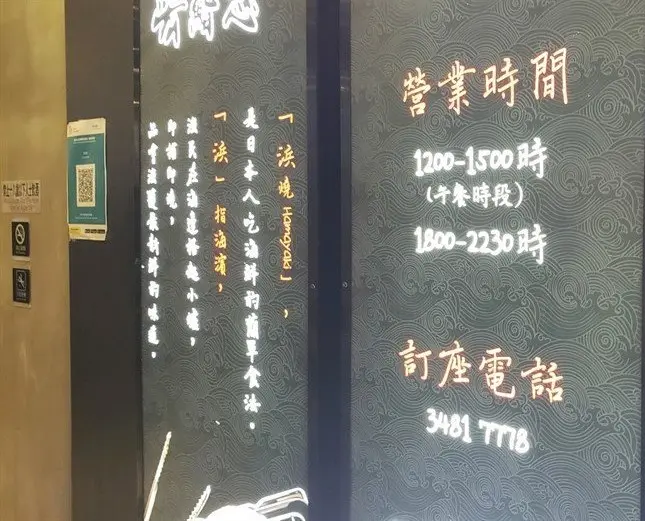 「浜燒 Hamayaki」，
是日本人吃海鮮的簡單食法。
「浜」指海濱，
漁民在海邊搭起小爐，
即捕即燒，
品嚐漁獲最新鮮的味道。
營業時間
1200-1500時
(午餐時段)
1800-2230時
訂座電話
3481 7778